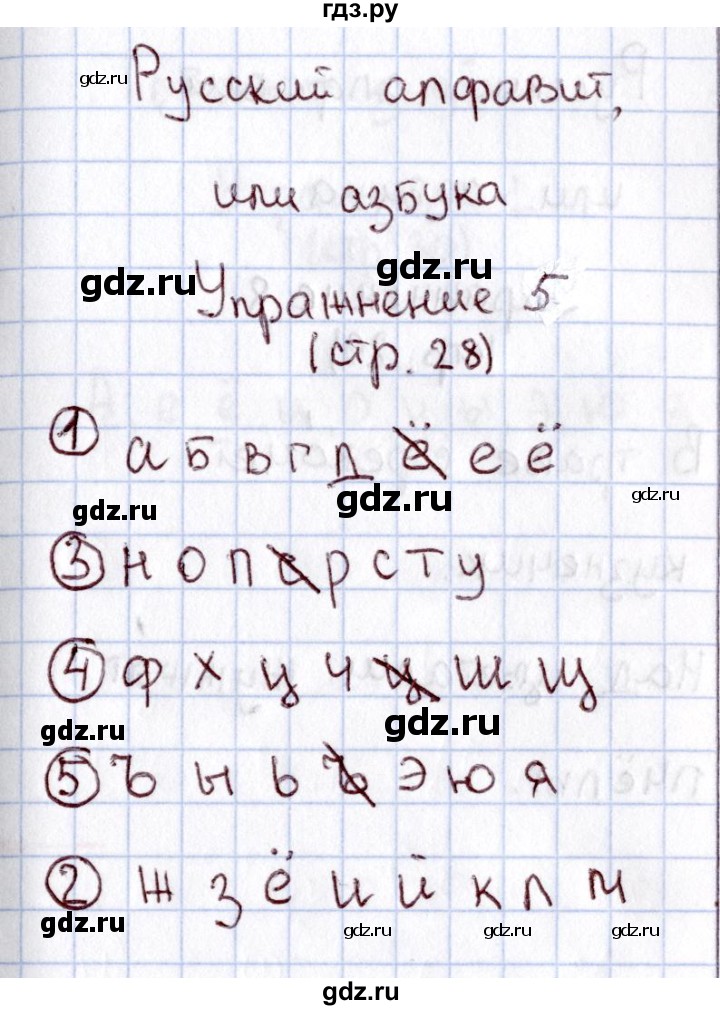 гдз.ру
gdz.ru
Русский алфавит,
или азбука
gdz.ru
gdz.ru
Упражнение 5
(стр. 28)
1 а б в г д ё е ё
gdz.ru
gdz.ru
gdz.ru
3 н о п а р с т у
4 ф х ц ч ц ш щ
gdz.ru
gdz.ru
5 ъ ы ь ъ э ю я
2 ж з ё и й к л м
gdz.ru
gdz.ru
gdz.ru
gdz.ru
gdz.ru